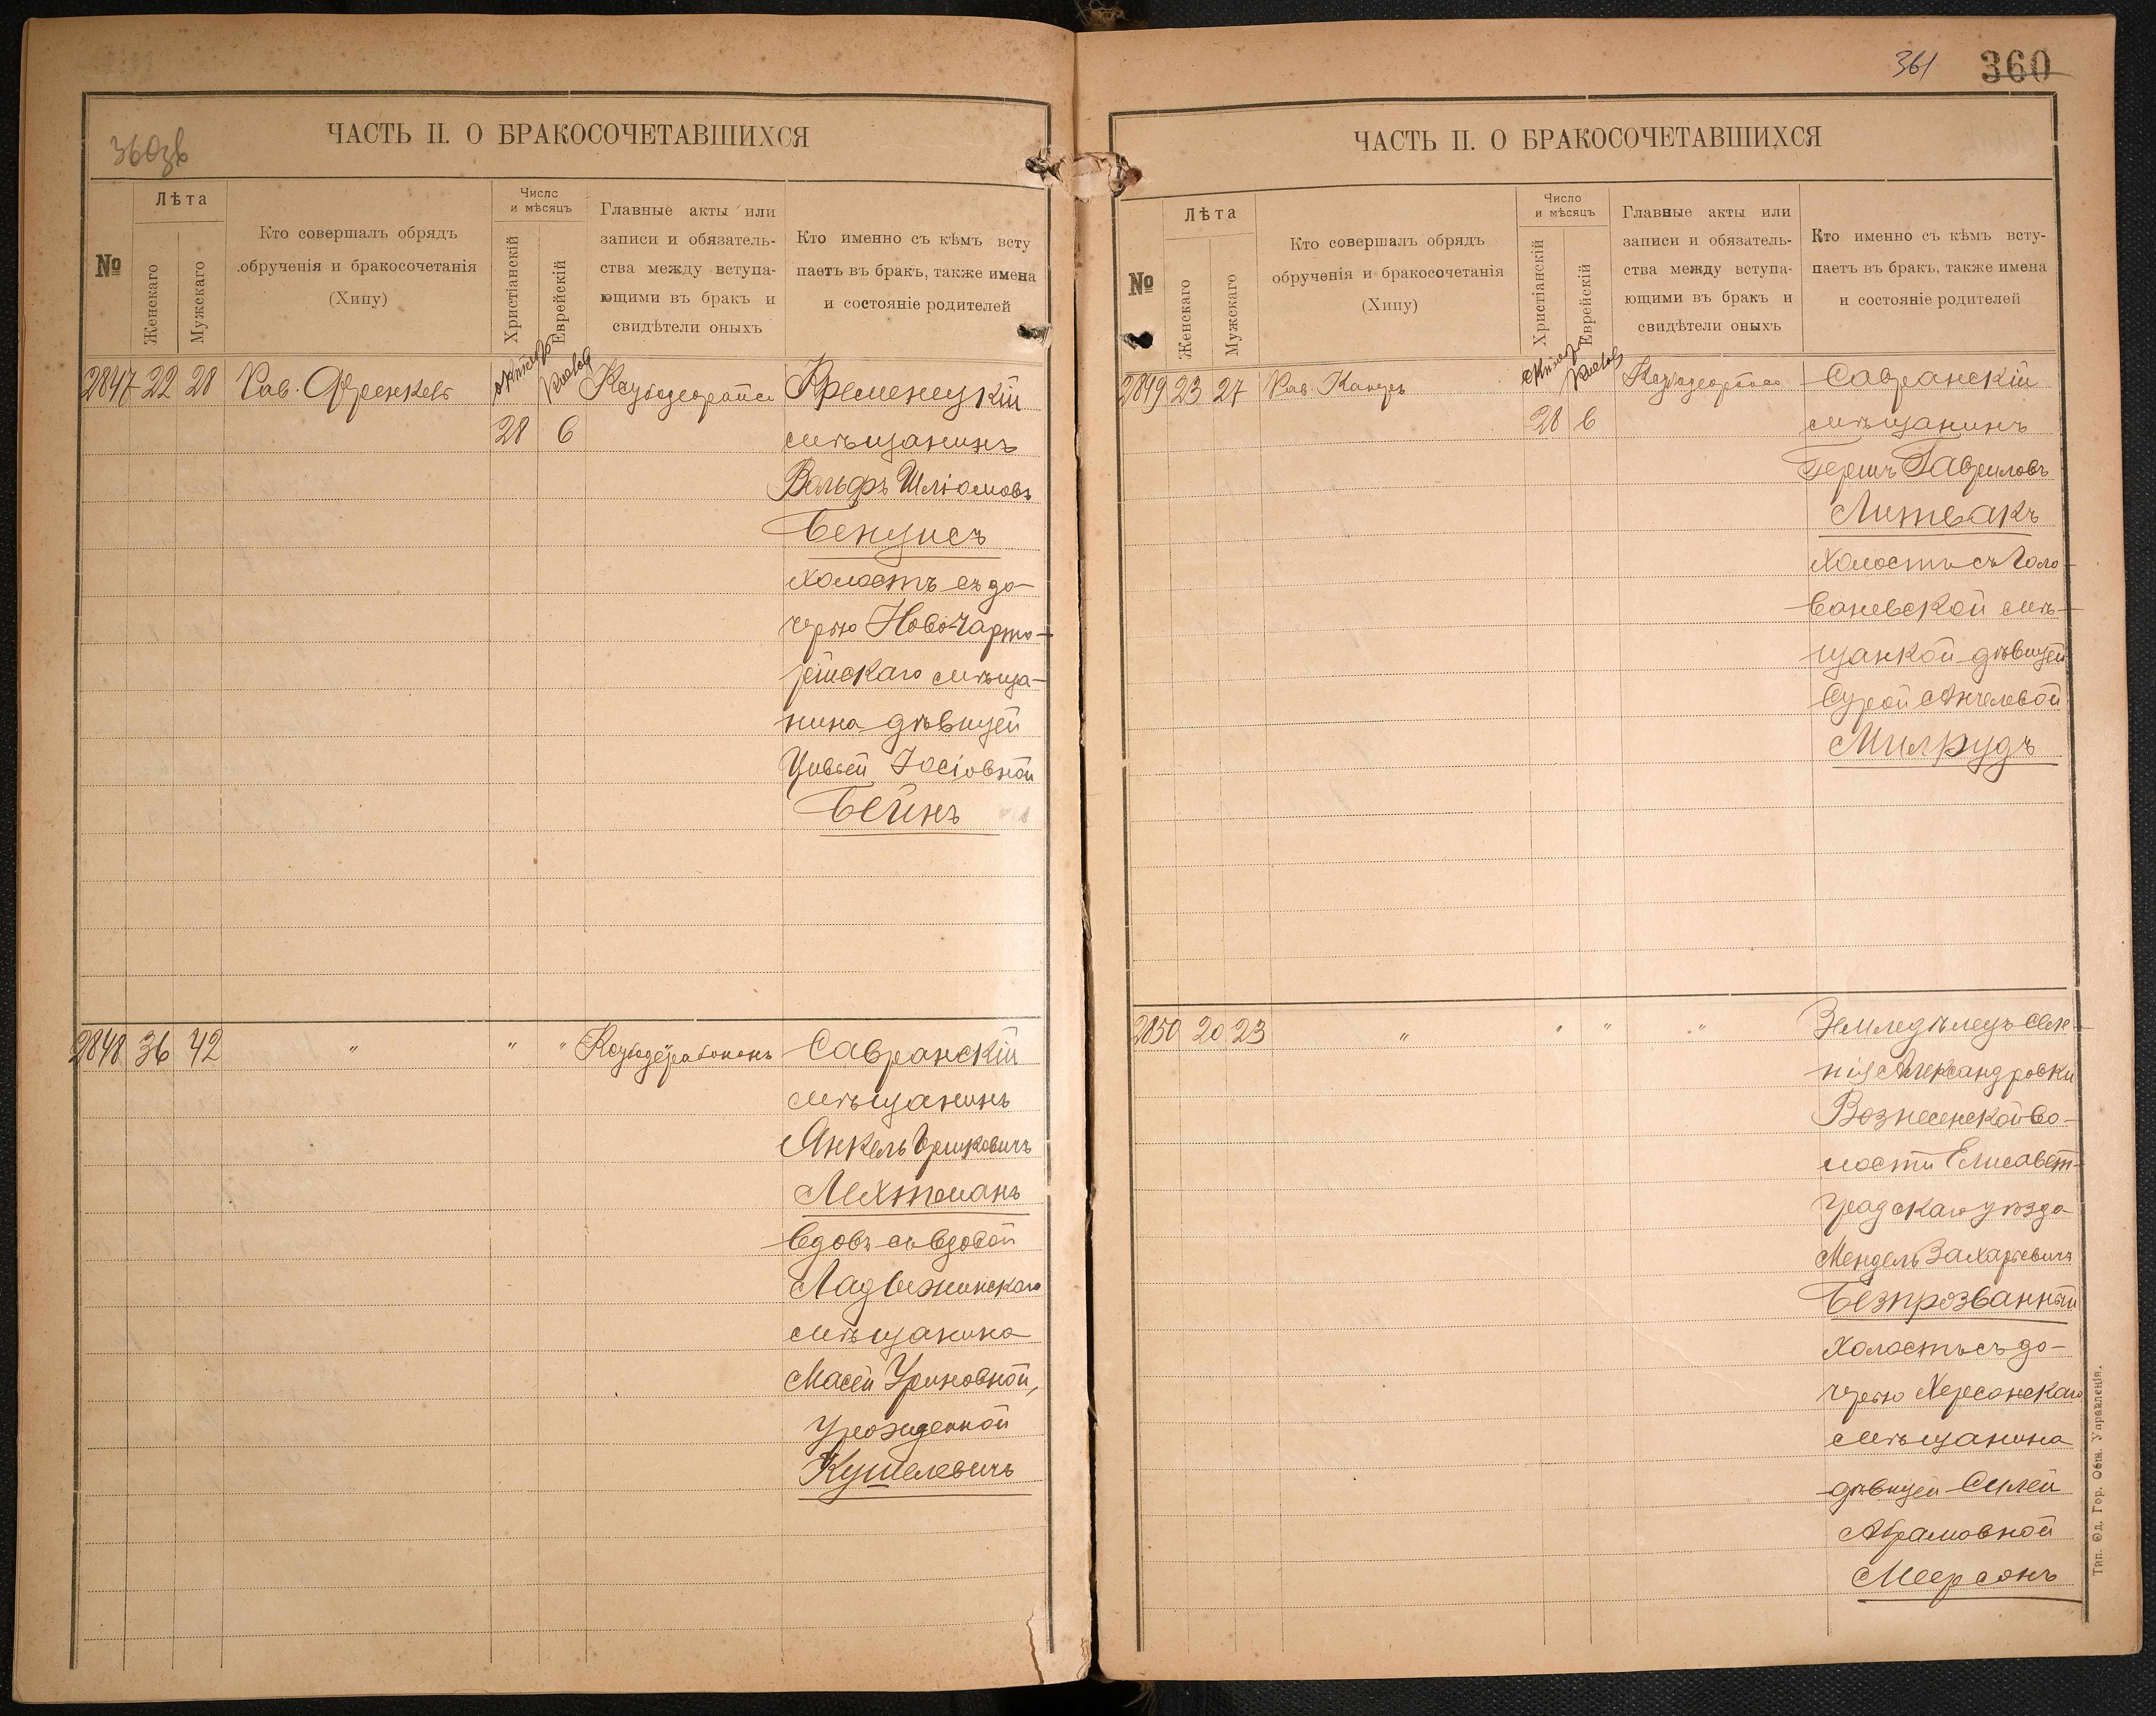 360зв
ЧАСТЬ II. О БРАКОСОЧЕТАВШИХСЯ
№
Лѣта
Женскаго
Мужскаго
Кто совершалъ обрядъ
обрученія и бракосочетанія
(Хипу)
Число
и мѣсяцъ
Христіанскій
Еврейскій
Главные акты или
записи и обязатель-
ства между вступа-
ющими въ бракъ и
свидѣтели оныхъ
Кто именно съ кѣмъ всту
паетъ въ бракъ, также имена
и состояніе родителей
2847 22 28 Рав. Френкель
28 6
Кременецкій
мѣщанинъ
Вольфъ Шліомовъ
Бенцисъ
холостъ съ до-
черью Ново-Чарто-
рыйскаго мѣща-
нина дѣвицей
Цивьей Іосіовной
Бейнъ
2848 36 42 " " "
Савранскій
мѣщанинъ
Янкель Ершковичъ
Лехтманъ
вдовъ съ вдовой
Ладыжинскаго
мѣщанина
Масей Уриновной,
урожденной
Кушелевичъ
361 360
ЧАСТЬ II. О БРАКОСОЧЕТАВШИХСЯ
№
Лѣта
Женскаго
Мужскаго
Кто совершалъ обрядъ
обрученія и бракосочетанія
(Хипу)
Число
и мѣсяцъ
Христіанскій
Еврейскій
Главные акты или
записи и обязатель-
ства между вступа-
ющими въ бракъ и
свидѣтели оныхъ
Кто именно съ кѣмъ всту-
паетъ въ бракъ, также имена
и состояніе родителей
2849 23 27 Рав. Канцъ
28 6
Савранскій
мѣщанинъ
Гершъ Гавриловъ
Литвакъ
холостъ съ Голо-
ваневской мѣ-
щанкой дѣвицей
Сурой Анчелевой
Милрудъ
2850 20 23 " " " "
Земледѣлецъ селе-
нія Александровки
Вознесенской во-
лости Елисавет-
градскаго уѣзда
Мендель Захарьевичъ
Безпрозванный
холостъ съ до-
черью Херсонскаго
мѣщанина
дѣвицей Силей
Абрамовной
Меерсонъ
Тип. Од. Гор. Общ. Управленія.